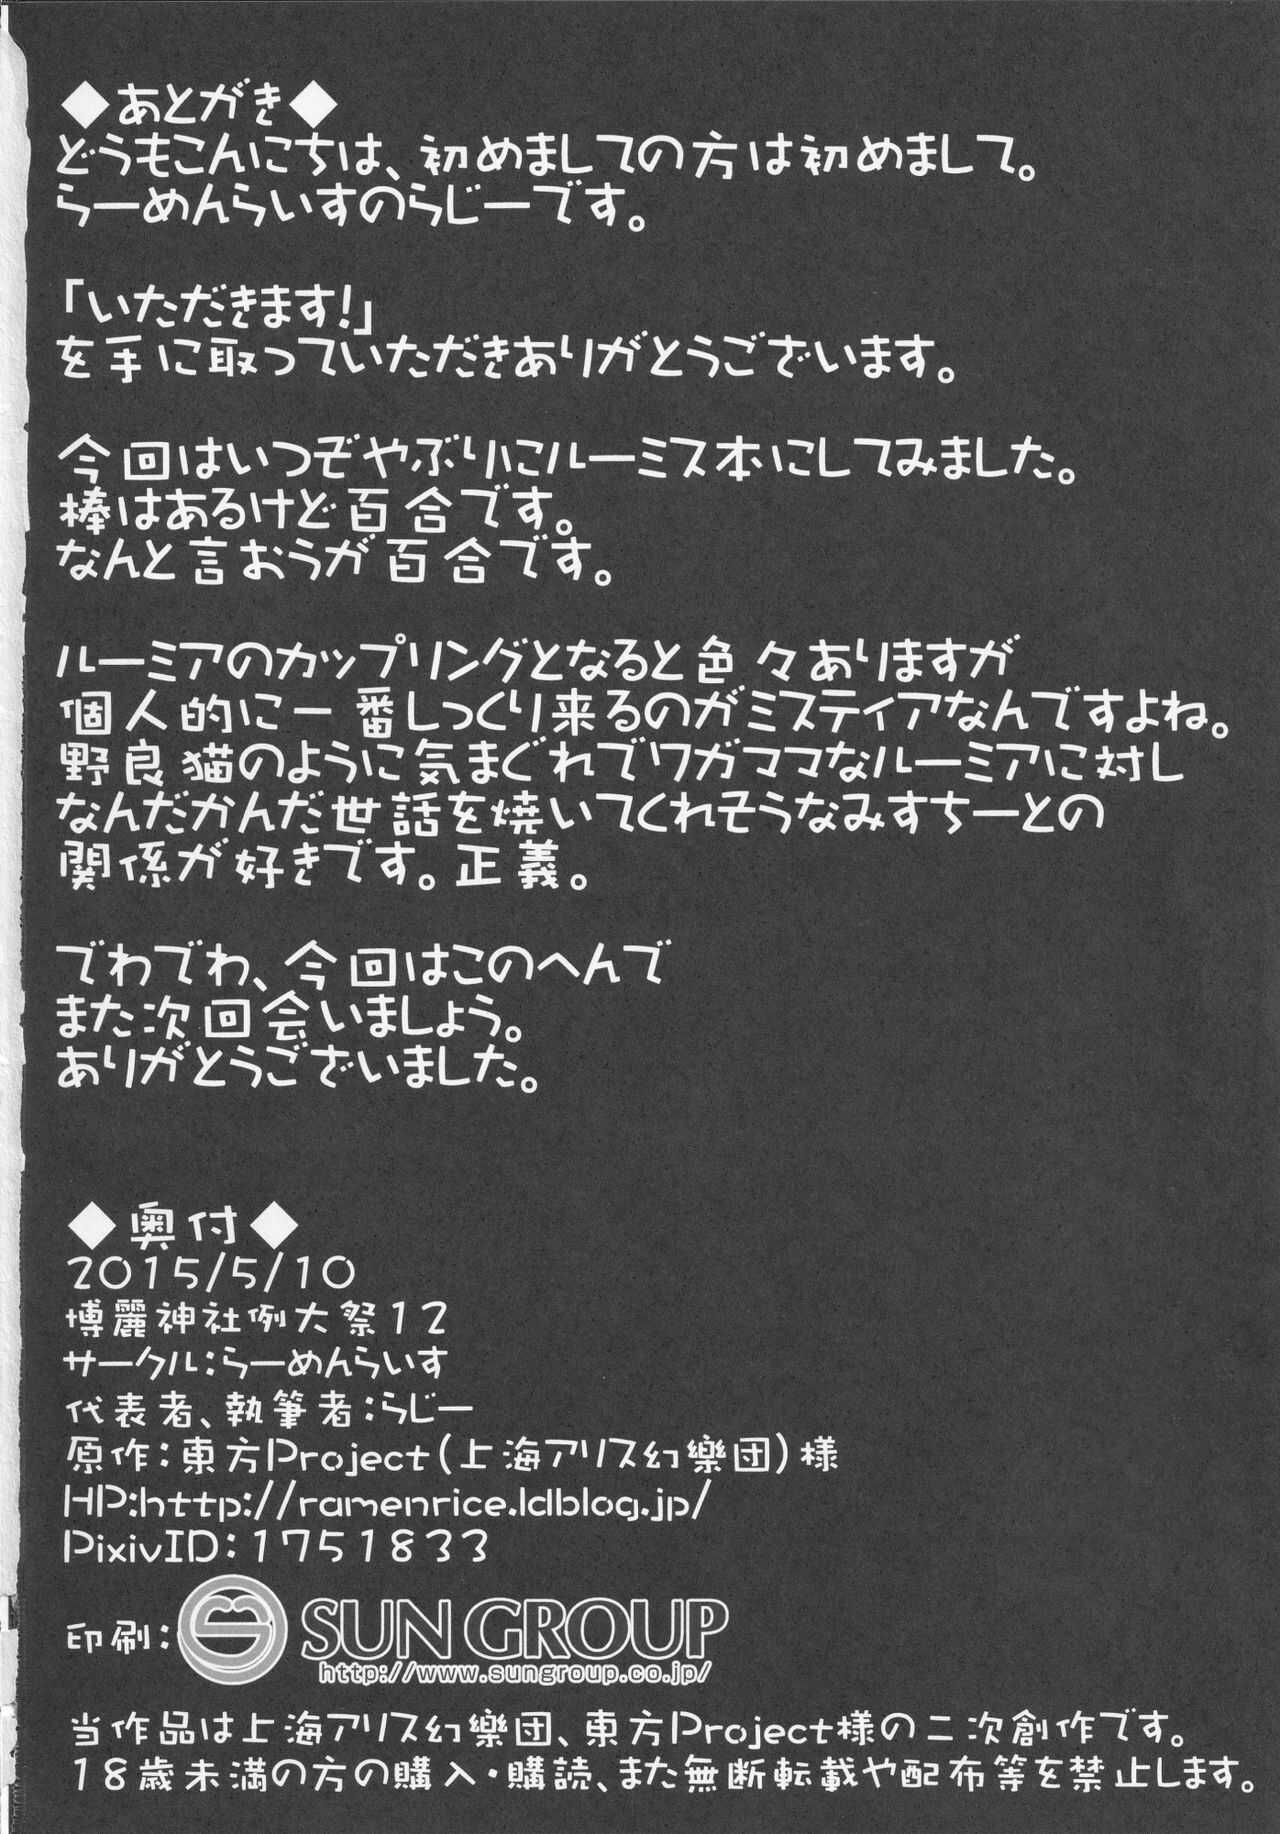 ◆あとがき◆
どうもこんにちは、初めましての方は初めまして。
らーめんらいすのらじーです。
「いただきます!」
を手に取っていただきありがとうございます。
今回はいつぞやぶりにルーミス本にしてみました。
棒はあるけど百合です。
なんと言おうが百合です。
ルーミアのカップリングとなると色々ありますが
個人的に一番しっくり来るのがミスティアなんですよね。
野良猫のように気まぐれでワガママなルーミアに対し
なんだかんだ世話を焼いてくれそうなみすちーとの
関係が好きです。正義。
でわでわ、今回はこのへんで
また次回会いましょう。
ありがとうございました。
◆奥付◆
2015/5/10
博麗神社例大祭12
サークル:らーめんらいす
代表者、執筆者:らじー
原作:東方Project(上海アリス幻樂団)様
HP:http://ramenrice.ldblog.jp/
PixivID:1751833
印刷: SUN GROUP
http://www.sungroup.co.jp/
当作品は上海アリス幻樂団、東方Project様の二次創作です。
18歳未満の方の購入・購読、また無断転載や配布等を禁止します。